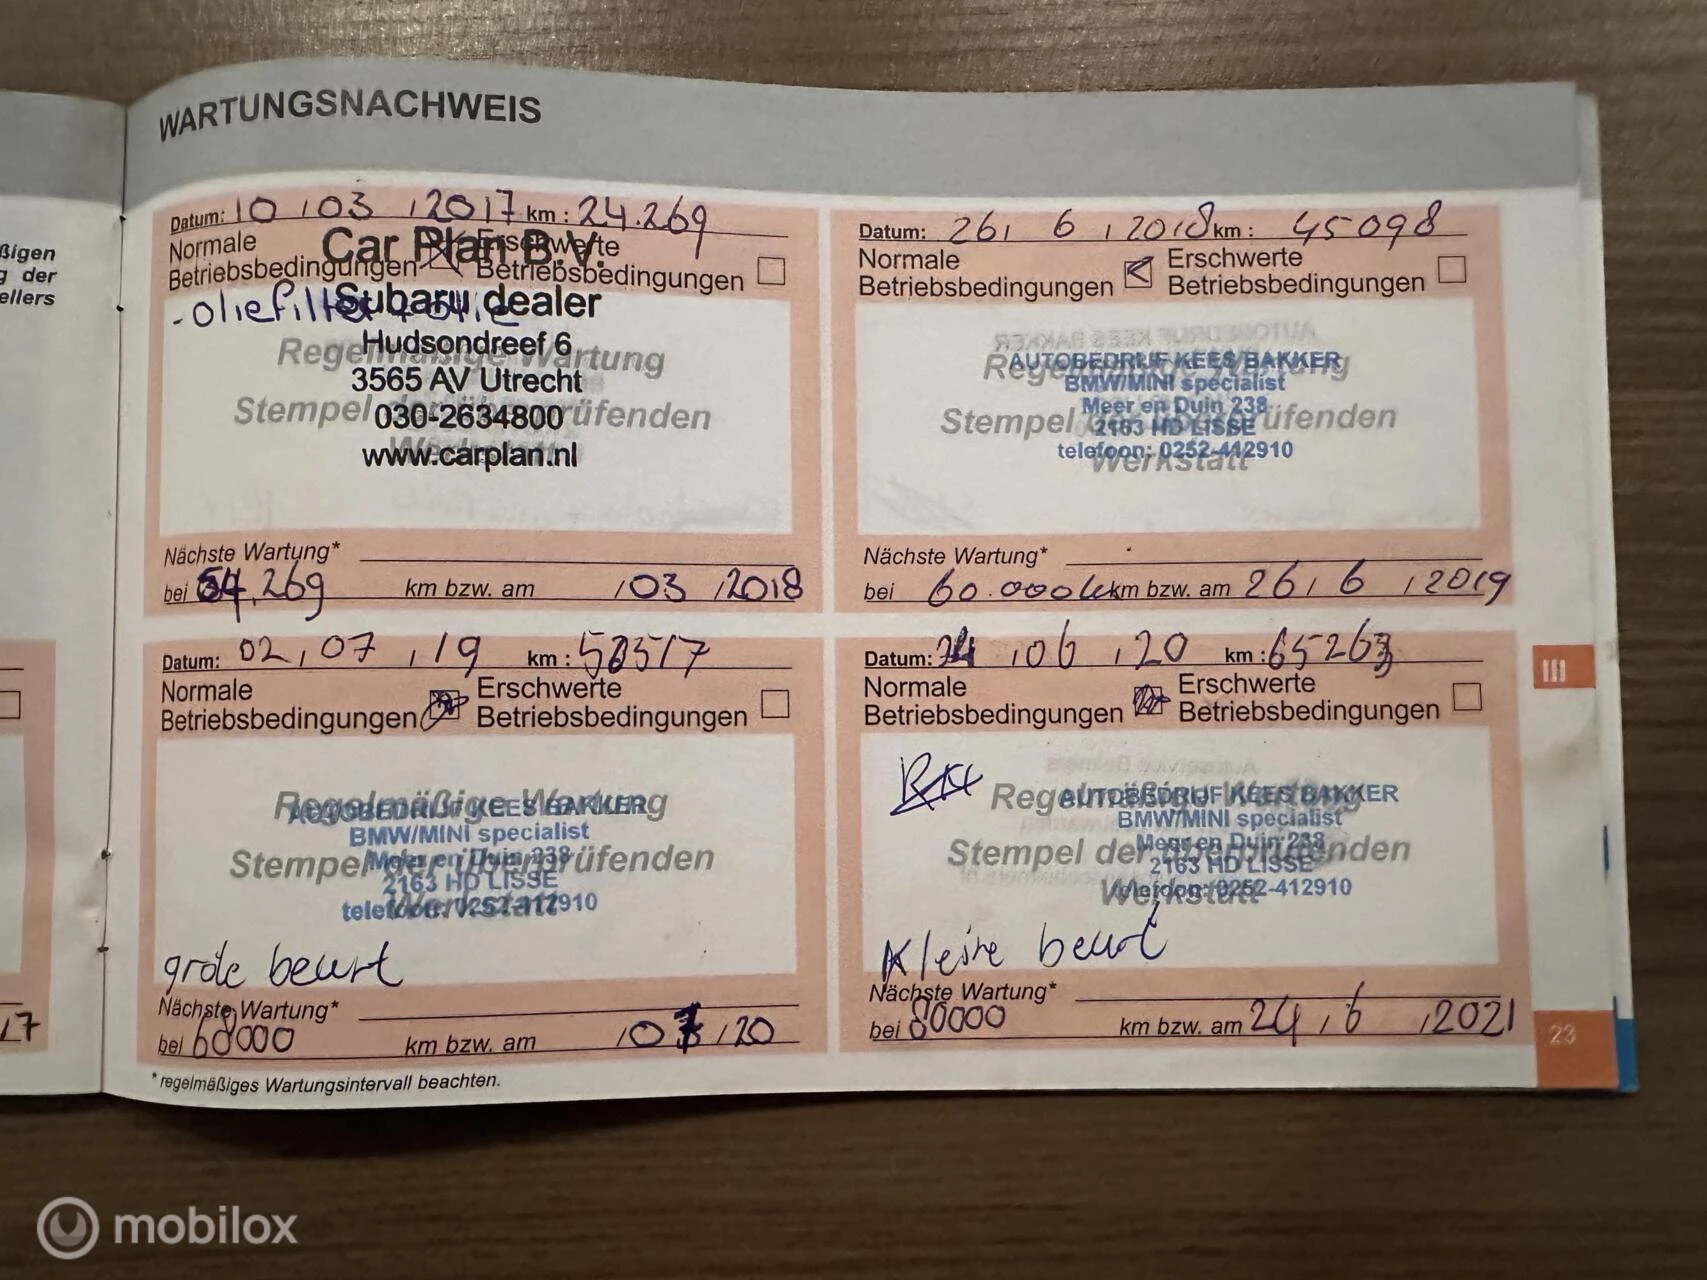 WARTUNGSNACHWEIS
ßigen
g der
ellers
17
Datum: 10 / 03 / 2017 km : 24.269
Normale Betriebsbedingungen Erschwerte Betriebsbedingungen
-oliefilter + olie
Car Plan B.V.
Subaru dealer
Hudsondreef 6
3565 AV Utrecht
030-2634800
www.carplan.nl
Regelmäßige Wartung
Stempel der überprüfenden
Werkstatt
Nächste Wartung*
bei 54.269 km bzw. am / 03 / 2018
Datum: 26 / 6 / 2018 km : 45098
Normale Betriebsbedingungen Erschwerte Betriebsbedingungen
AUTOBEDRIJF KEES BAKKER
BMW/MINI specialist
Meer en Duin 238
2163 HD LISSE
telefoon: 0252-412910
Regelmäßige Wartung
Stempel der überprüfenden
Werkstatt
Nächste Wartung*
bei 60.000 km bzw. am 26 / 6 / 2019
Datum: 02 / 07 / 19 km :
Normale Betriebsbedingungen Erschwerte Betriebsbedingungen
Regelmäßige Wartung
AUTOBEDRIJF KEES BAKKER
BMW/MINI specialist
Meer en Duin 238
2163 HD LISSE
telefoon: 0252-412910
Stempel der überprüfenden
Werkstatt
grote beurt
Nächste Wartung*
bei 68000 km bzw. am / 07 / 20
Datum: 24 / 06 / 20 km : 65263
Normale Betriebsbedingungen Erschwerte Betriebsbedingungen
Regelmäßige Wartung
AUTOBEDRIJF KEES BAKKER
BMW/MINI specialist
Meer en Duin 238
2163 HD LISSE
telefoon: 0252-412910
Stempel der überprüfenden
Werkstatt
Kleine beurt
Nächste Wartung*
bei 80000 km bzw. am 24 / 6 / 2021
*regelmäßiges Wartungsintervall beachten.
III
23
mobilox